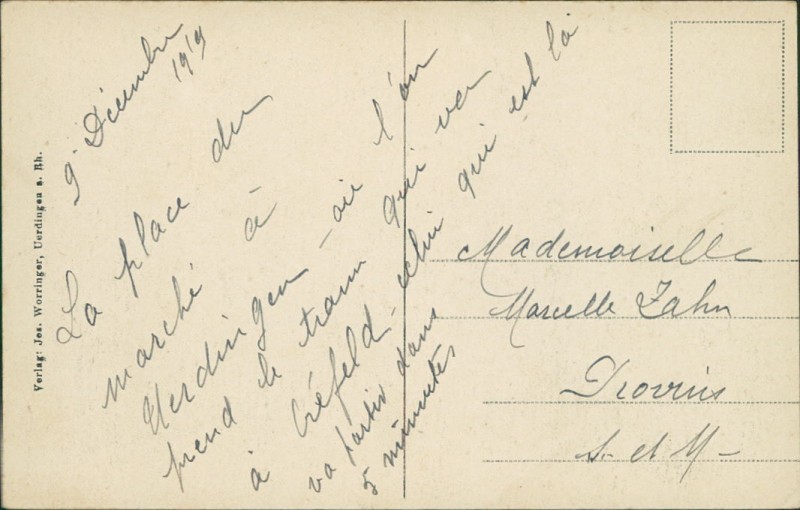 9 Décembre
1919
La place du
marché à
Uerdingen - où l'on
prend le tram qui va
à Créfeld - celui qui est là
va partir dans
5 minutes
Mademoiselle
Marcelle Zahn
Provins
S. et M -
Verlag: Jos. Worringer, Uerdingen a. Rh.